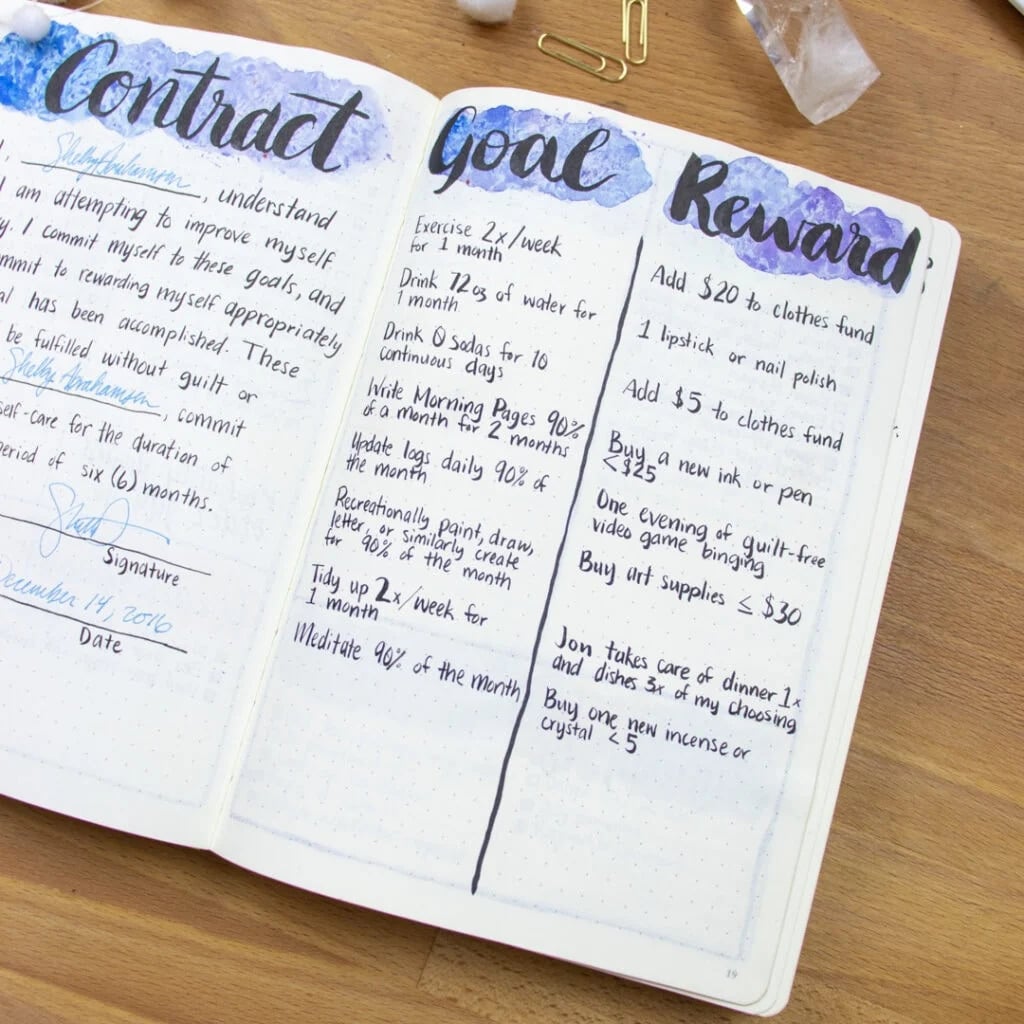 Contract
I, Shelby Abrahamsen, understand
I am attempting to improve myself
I commit myself to these goals, and
to rewarding myself appropriately
has been accomplished. These
be fulfilled without guilt or
Shelby Abrahamsen, commit
self-care for the duration of
period of six (6) months.
Signature
December 14, 2016
Date
Goal
Exercise 2x/week
for 1 month
Drink 72oz of water for
1 month
Drink 0 sodas for 10
continuous days
Write Morning Pages 90%
of a month for 2 months
Update logs daily 90% of
the month
Recreationally paint, draw,
letter, or similarly create
for 90% of the month
Tidy up 2x/week for
1 month
Meditate 90% of the month
Reward
Add $20 to clothes fund
1 lipstick or nail polish
Add $5 to clothes fund
Buy a new ink or pen
<$25
One evening of guilt-free
video game binging
Buy art supplies ≤ $30
Jon takes care of dinner 1x
and dishes 3x of my choosing
Buy one new incense or
crystal <5
19